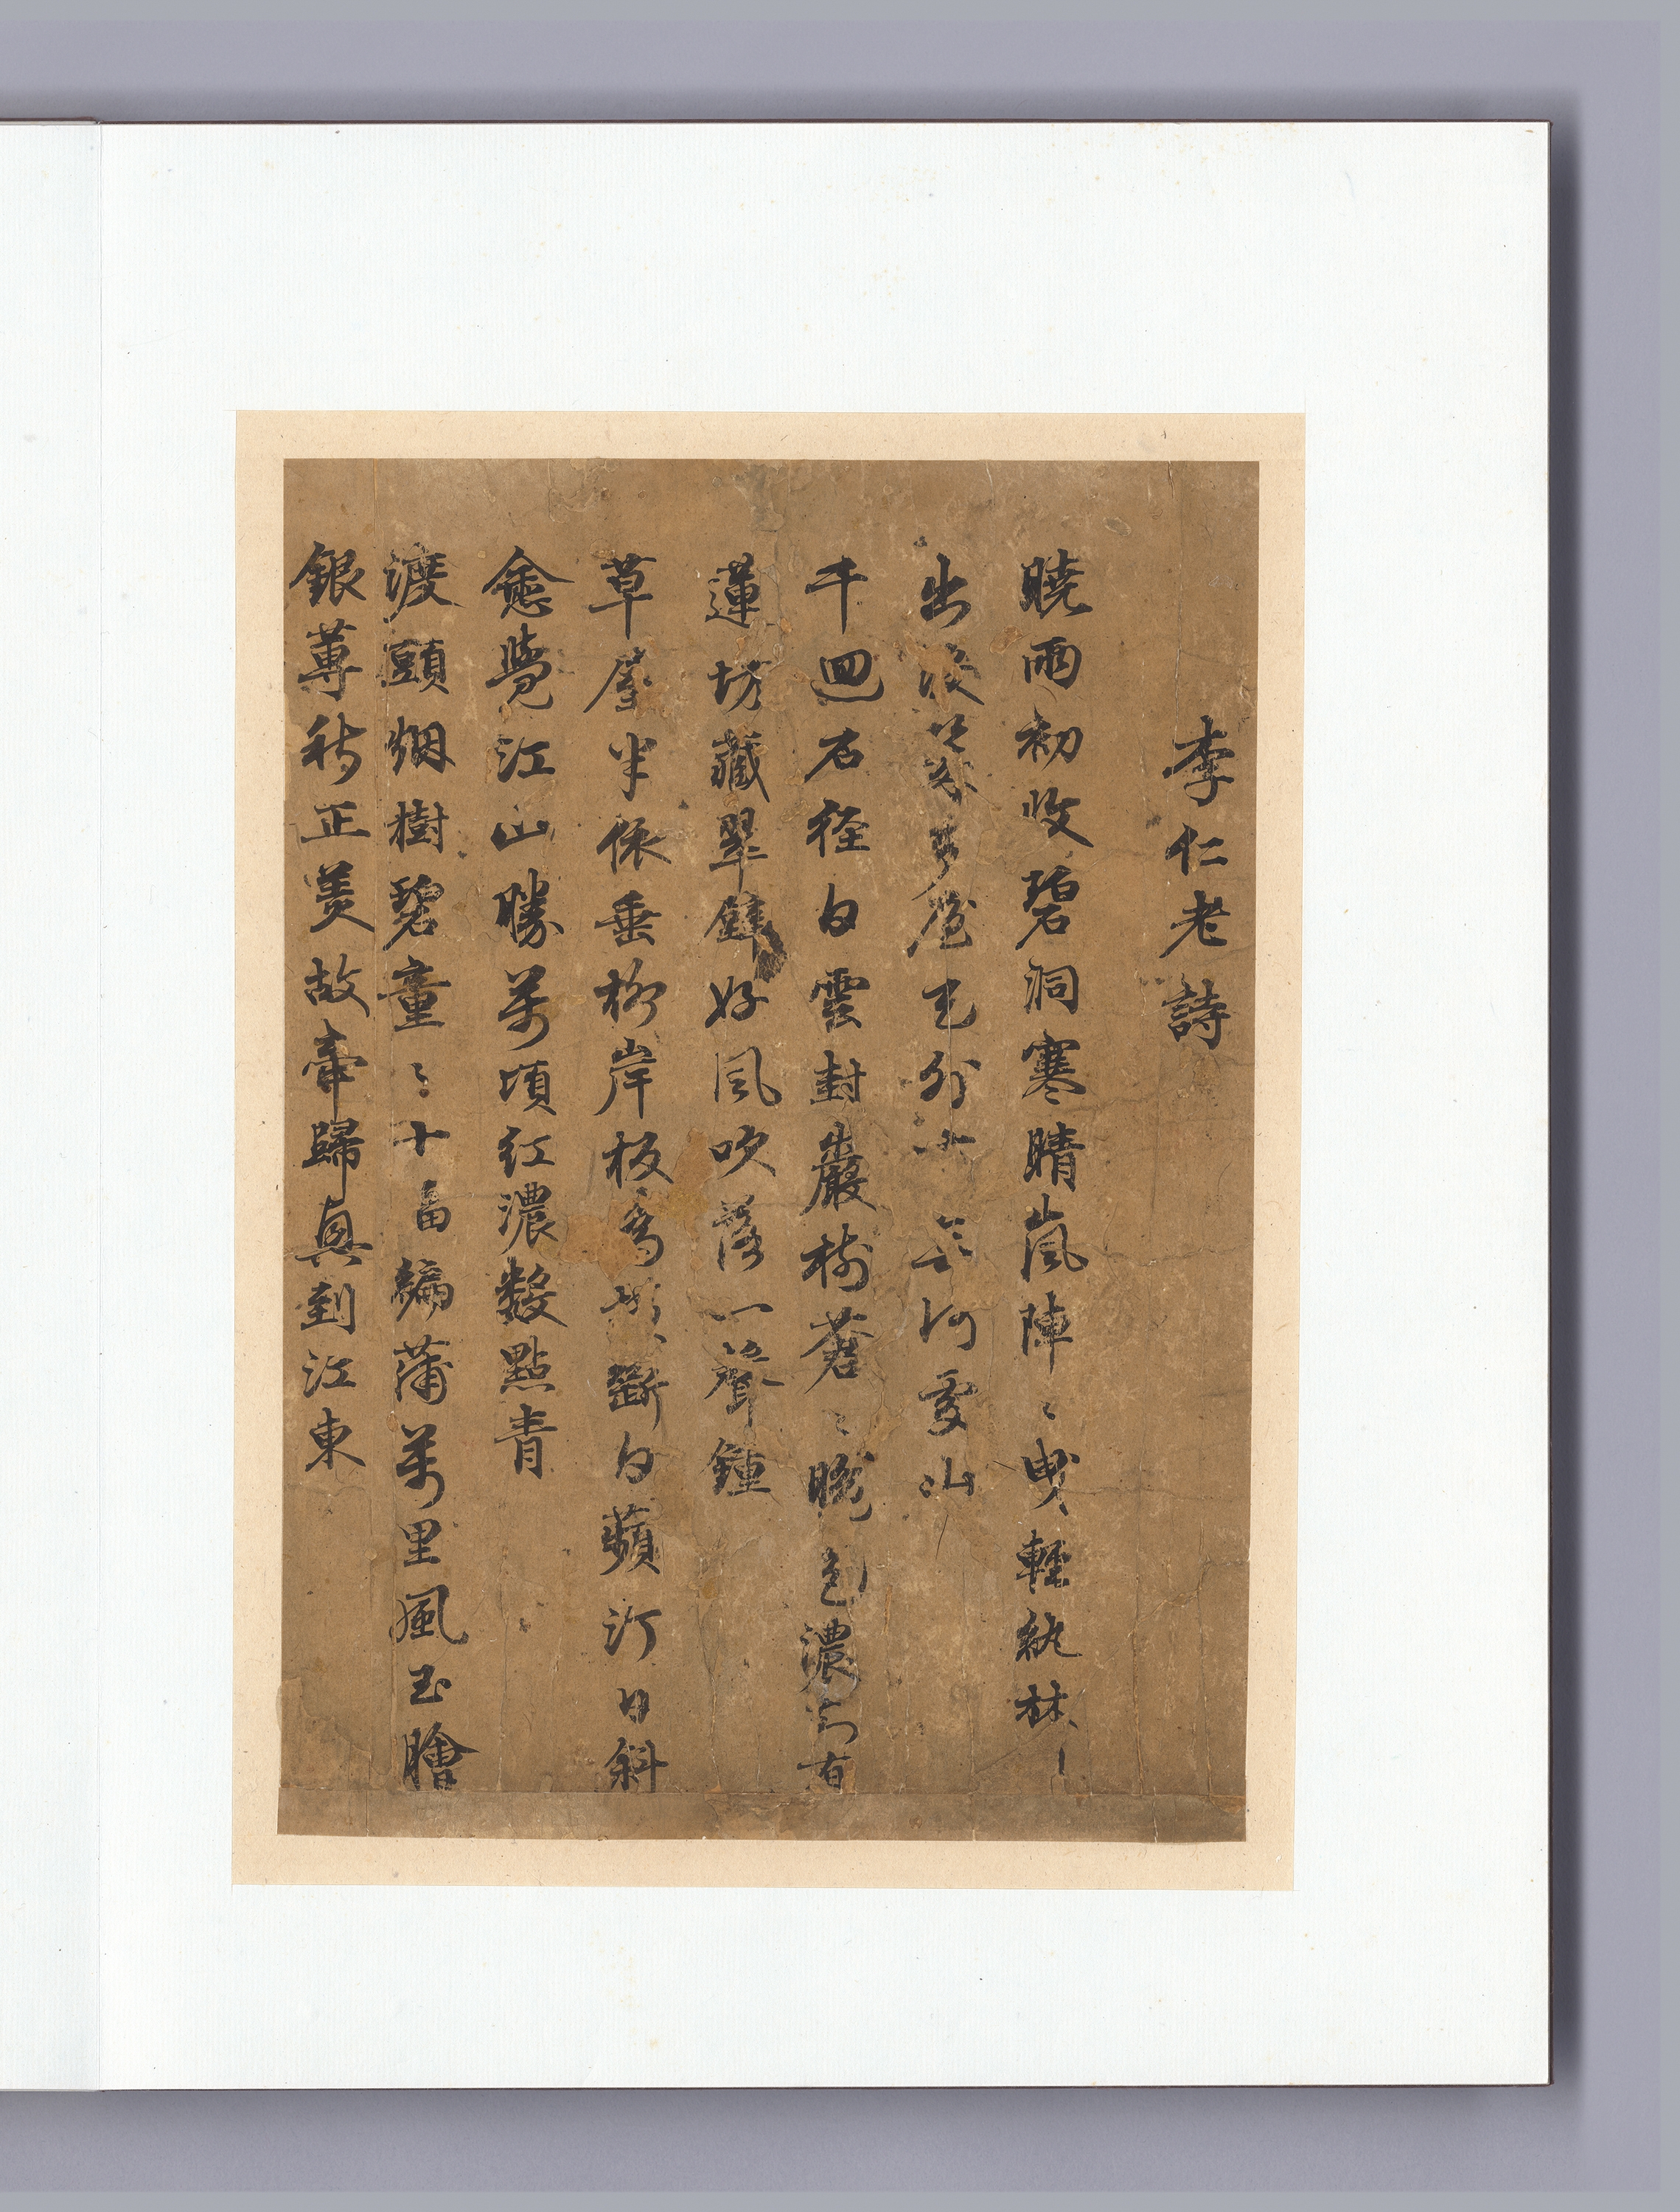 李仁老詩
曉雨初收碧洞寒晴嵐陣〻曳輕紈林
出沒幾多屋天外無何處山
千迴石徑白雲封巖樹蒼〻晚色濃知有
蓮坊藏翠壁好風吹落一聲鍾
草屋半依垂柳岸板橋橫斷白蘋汀日斜
愈覺江山勝萬頃紅濃數點青
渡頭烟樹碧童〻十畐編蒲萬里風玉膾
銀蓴秋正美故牽歸興到江東